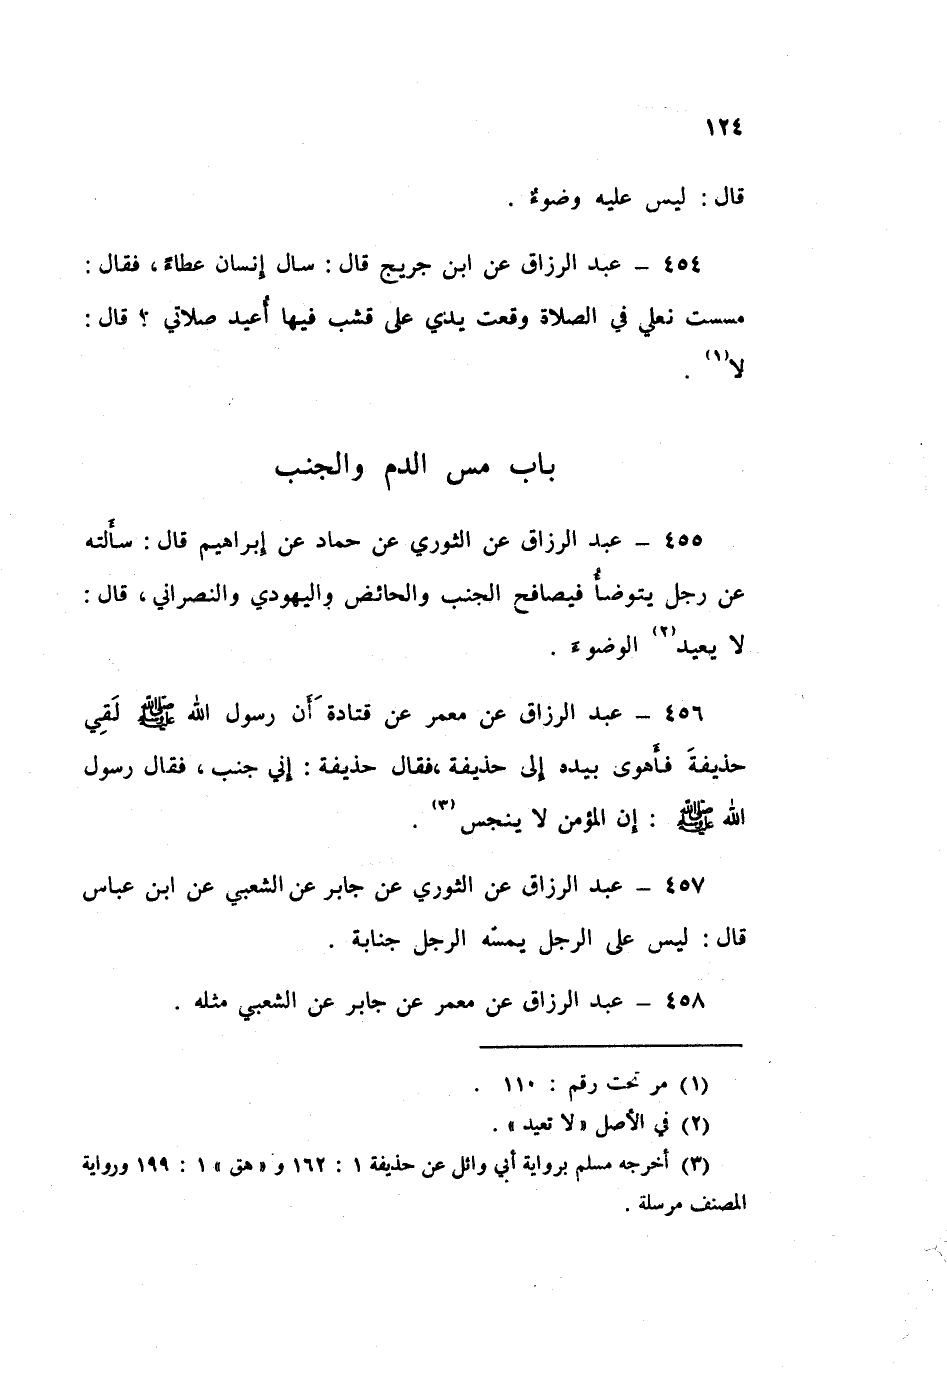 ١٢٤
قال : ليس عليه وضوءٌ .
٤٥٤ ــ عبد الرزاق عن ابن جريج قال : سال إنسان عطاءً ، فقال :
مسست نعلي في الصلاة وقعت يدي على قشب فيها أُعيد صلاتي ؟ قال :
لا(١) .
باب مس الدم والجنب
٤٥٥ ــ عبد الرزاق عن الثوري عن حماد عن إبراهيم قال : سأَلته
عن رجل يتوضأُ فيصافح الجنب والحائض واليهودي والنصراني ، قال :
لا يعيد(٢) الوضوءَ .
٤٥٦ ــ عبد الرزاق عن معمر عن قتادة أَن رسول الله ﷺ لَقِي
حذيفةَ فأَهوى بيده إلى حذيفة ،فقال حذيفة : إني جنب ، فقال رسول
الله ﷺ : إن المؤمن لا ينجس(٣) .
٤٥٧ ــ عبد الرزاق عن الثوري عن جابر عن الشعبي عن ابن عباس
قال : ليس على الرجل يمسّه الرجل جنابة .
٤٥٨ ــ عبد الرزاق عن معمر عن جابر عن الشعبي مثله .
(١) مر تحت رقم : ١١٠ .
(٢) في الأصل «لا تعيد» .
(٣) أخرجه مسلم برواية أبي وائل عن حذيفة ١ : ١٦٢ و «هق» ١ : ١٩٩ ورواية
المصنف مرسلة .